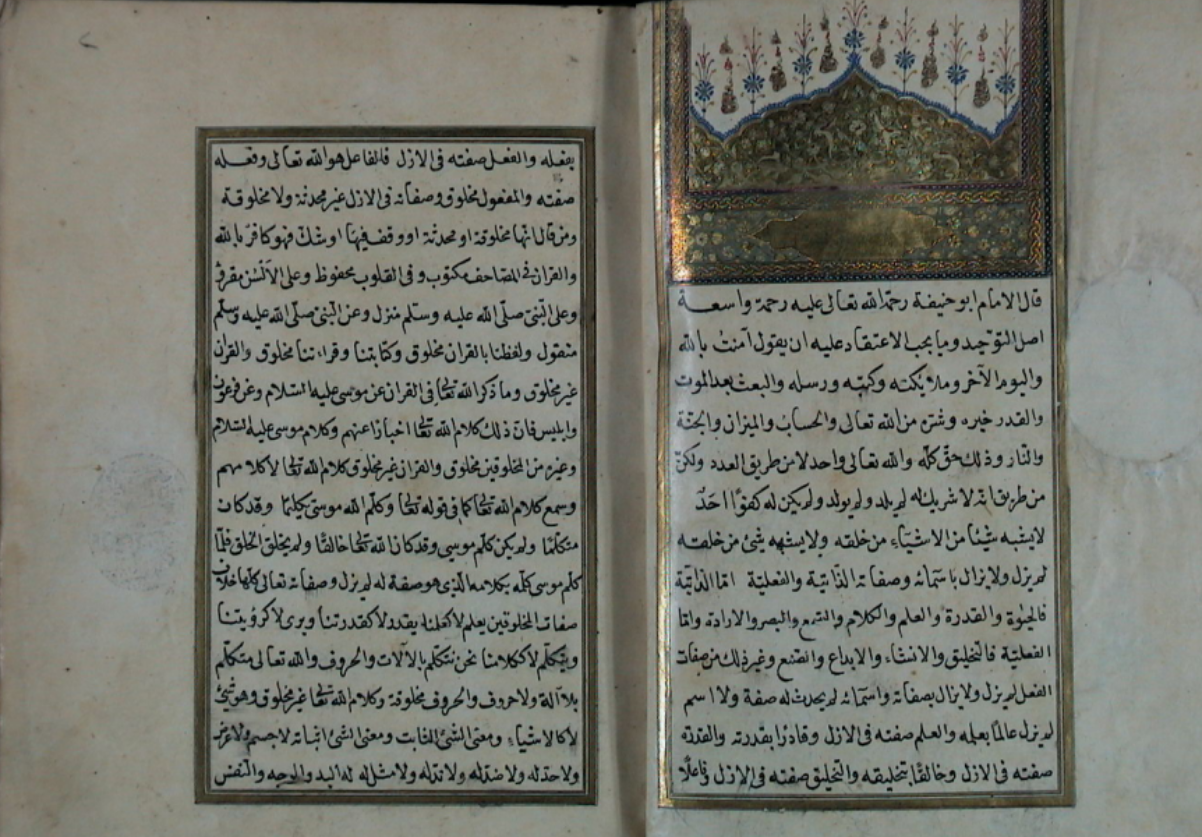 قال الامام ابو حنيفة رحمة الله تعالى عليه رحمة واسعة
اصل التوحيد وما يجب الاعتقاد عليه ان يقول آمنت بالله
واليوم الآخر وملائكته وكتبه ورسله والبعث بعد الموت
والقدر خيره وشره من الله تعالى والحساب والميزان والجنة
والنار وذلك حق كله والله تعالى واحد لا من طريق العدد ولكن
من طريق انه لا شريك له لم يلد ولم يولد ولم يكن له كفوًا احد
لا يشبه شيئا من الاشياء من خلقه ولا يشبهه شئ من خلقه
لم يزل ولا يزال باسمائه وصفاته الذاتية والفعلية اما الذاتية
فالحيوة والقدرة والعلم والكلام والسمع والبصر والارادة واما
الفعلية فالتخليق والانشاء والابداع والصنع وغير ذلك من صفات
الفعل لم يزل ولا يزال بصفاته واسمائه لم يحدث له صفة ولا اسم
لم يزل عالمًا بعلمه والعلم صفته فى الازل وقادرًا بقدرته والقدرة
صفته فى الازل وخالقًا بتخليقه والتخليق صفته فى الازل وفاعلًا
بفعله والفعل صفته فى الازل فالفاعل هو الله تعالى وفعله
صفته والمفعول مخلوق وصفاته فى الازل غير محدثة ولا مخلوقة
ومن قال انها مخلوقة او محدثة او وقف فيها او شك فهو كافر بالله
والقران فى المصاحف مكتوب وفى القلوب محفوظ وعلى الالسن مقروّ
وعلى النبى صلى الله عليه وسلم منزل وعن النبى صلى الله عليه وسلم
منقول ولفظنا بالقران مخلوق وكتابتنا وقراءتنا مخلوق والقران
غير مخلوق وما ذكر الله تعالى فى القران عن موسى عليه السلام وعن فرعون
وابليس فان ذلك كلام الله تعالى اخبارًا عنهم وكلام موسى عليه السلام
وغيره من المخلوقين مخلوق والقران غير مخلوق كلام الله تعالى لا كلامهم
وسمع كلام الله تعالى كما فى قوله تعالى وكلم الله موسى تكليمًا وقد كان
متكلمًا ولم يكن كلم موسى وقد كان الله تعالى خالقًا ولم يخلق الخلق فلما
كلم موسى كلمه بكلامه الذى هو صفة له لم يزل وصفاته تعالى كلها خلاف
صفات المخلوقين يعلم لا كعلمنا يقدر لا كقدرتنا ويرى لا كرؤيتنا
ويتكلم لا ككلامنا نحن نتكلم بالآلات والحروف والله تعالى متكلم
بلا آلة ولا حروف والحروف مخلوقة وكلام الله تعالى غير مخلوق وهو شئ
لا كالاشياء ومعنى الشئ الثابت ومعنى الشئ اثباته لا جسم ولا عرض
ولا حد له ولا ضد له ولا ند له ولا مثل له له اليد والوجه والنفس